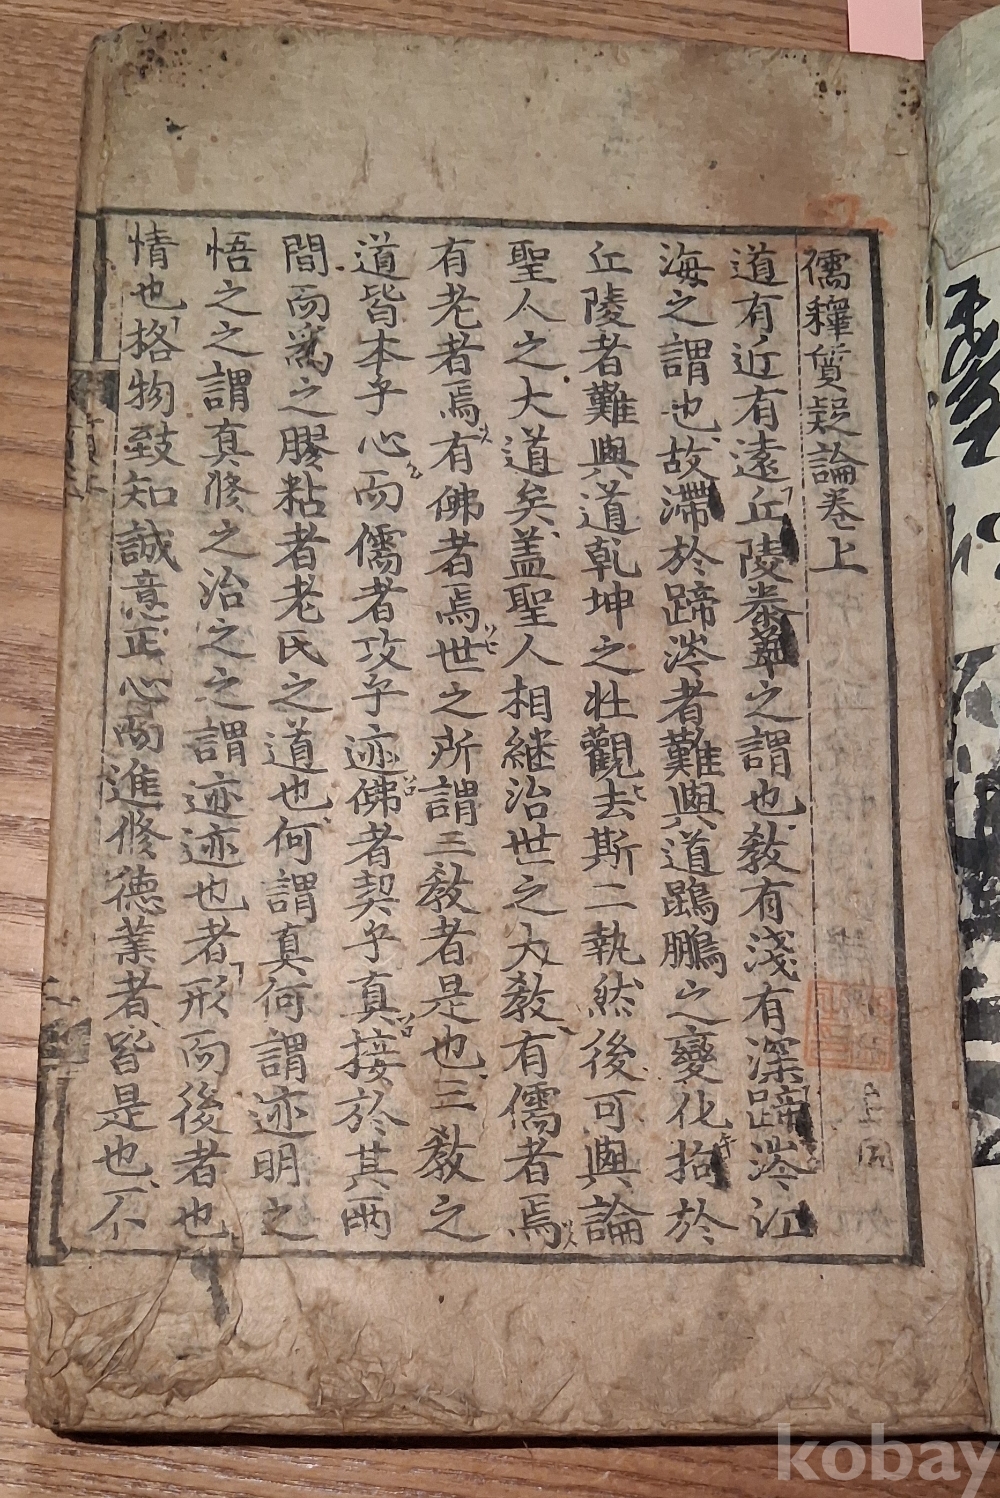 儒釋質疑論卷上
道有近有遠丘陵泰華之謂也敎有淺有深蹄涔江
海之謂也故滯於蹄涔者難與道鵾鵬之變化拘於
丘陵者難與道乾坤之壯觀去斯二執然後可與論
聖人之大道矣盖聖人相継治世之大敎有儒者焉
有老者焉有佛者焉世之所謂三敎者是也三敎之
道皆本乎心而儒者攻乎迹佛者契乎真接於其兩
間而爲之膠粘者老氏之道也何謂真何謂迹明之
悟之之謂真修之治之之謂迹迹也者形而後者也
情也格物致知誠意正心而進修德業者皆是也不
kobay